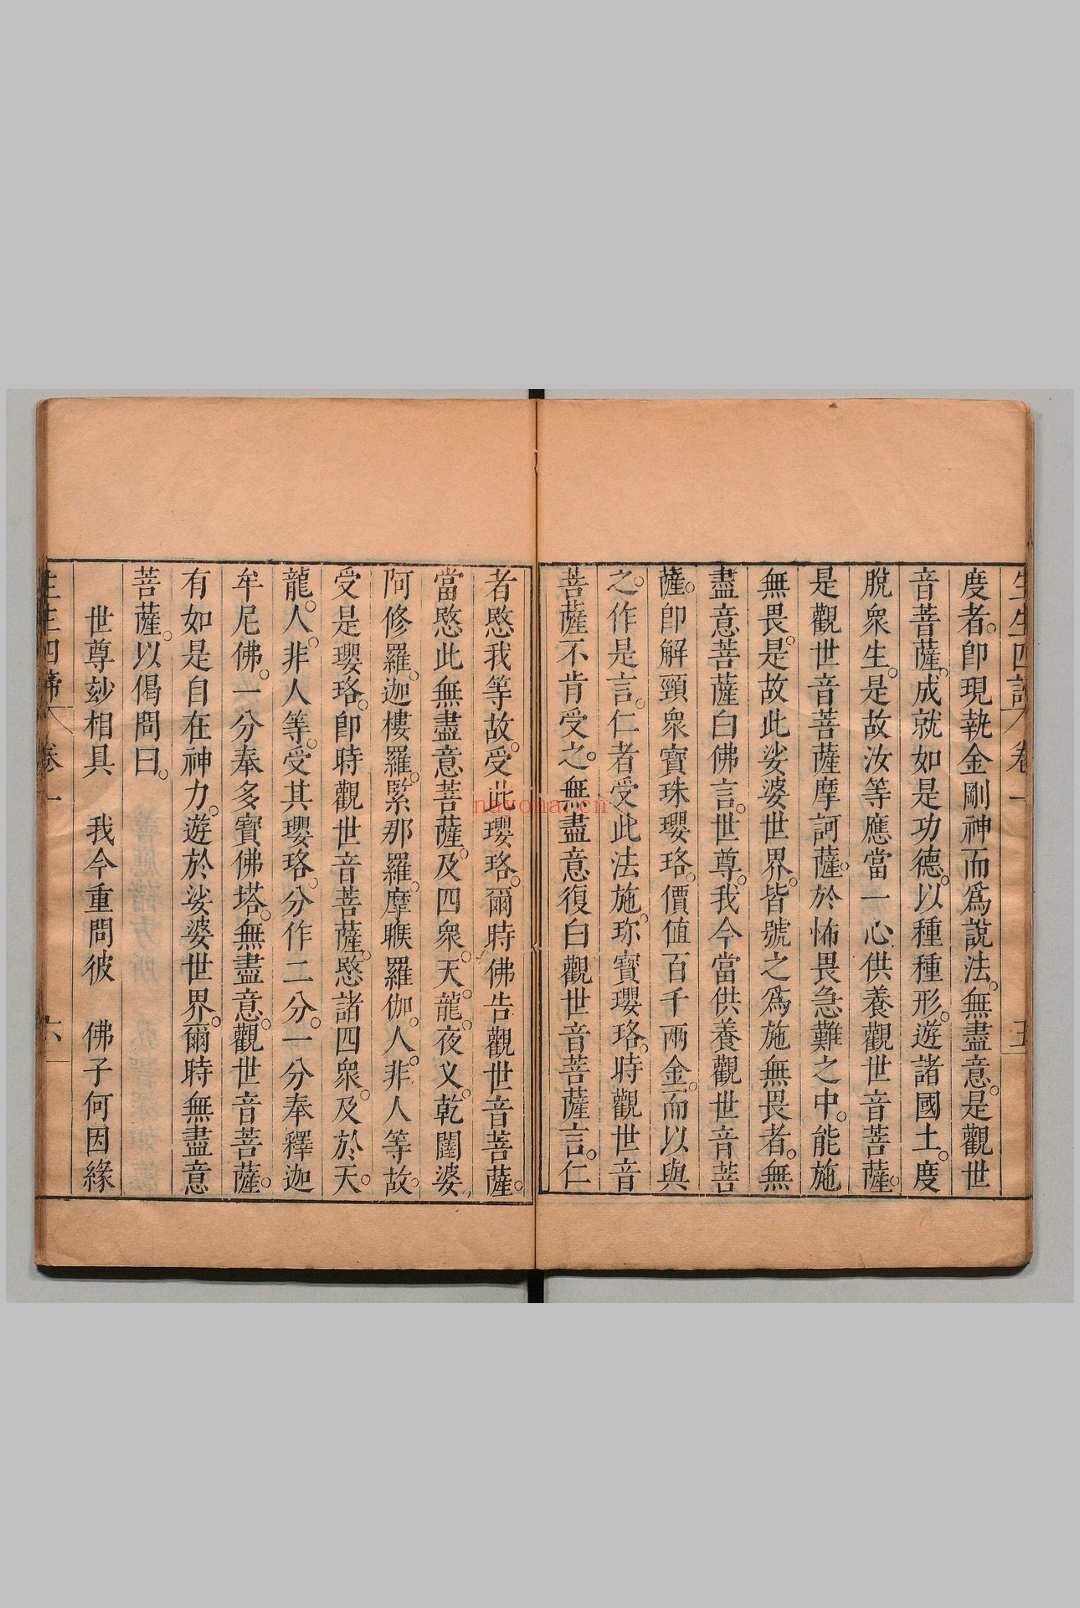 度者。卽現執金剛神而爲說法。無盡意。是觀世
音菩薩。成就如是功德。以種種形。遊諸國土。度
脫衆生。是故汝等應當一心供養觀世音菩薩。
是觀世音菩薩摩訶薩。於怖畏急難之中。能施
無畏。是故此娑婆世界。皆號之爲施無畏者。無
盡意菩薩白佛言。世尊。我今當供養觀世音菩
薩。卽解頸衆寶珠瓔珞。價值百千兩金。而以與
之。作是言。仁者受此法施。珎寶瓔珞。時觀世音
菩薩不肯受之。無盡意復白觀世音菩薩言。仁
者愍我等故。受此瓔珞。爾時佛告觀世音菩薩。
當愍此無盡意菩薩。及四衆。天。龍。夜叉。乾闥婆。
阿修羅。迦樓羅。緊那羅。摩睺羅伽。人。非人等故。
受是瓔珞。卽時觀世音菩薩。愍諸四衆。及於天。
龍。人。非人等。受其瓔珞。分作二分。一分奉釋迦
牟尼佛。一分奉多寶佛塔。無盡意。觀世音菩薩。
有如是自在神力。遊於娑婆世界。爾時無盡意
菩薩。以偈問曰。
世尊玅相具 我今重問彼 佛子何因緣
生生四諦 卷一 六
navona.cn